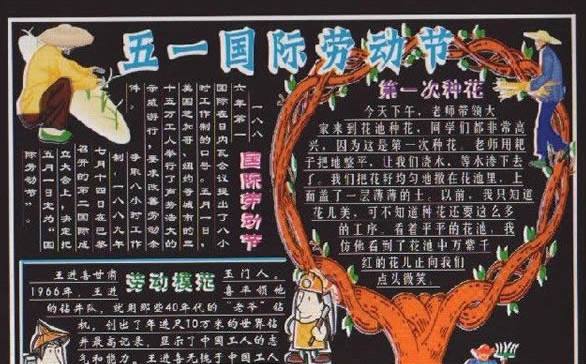 五一国际劳动节
一八八
六年第一
国际在日内瓦会议提出了八小
时工作制的口号。五月一日，
美国芝加哥、纽约等城市的三
十五万工人举行了声势浩大的
示威游行，要求改善劳动条
件，争取八小时工作
制。一八八九年
七月十四日在巴黎
召开的第二国际成
立大会上，决定把
五月一日定为“国
际劳动节”。
国际劳动节
第一次种花
今天下午，老师带领大
家来到花池种花，同学们都非常高
兴，因为这是第一次种花。老师用耙
子把地整平，让我们浇水，等水渗下去
了。我们把花籽均匀地撒在花池里，上
面盖了一层薄薄的土。以前，我只知道
花儿美，可不知道种花还要这么多
的工序。看着平平的花池，我
仿佛看到了花池中万紫千
红的花儿正向我们
点头微笑。
劳动模范
王进喜甘肃玉门人。
1966年，王进喜率领他
的钻井队，就用那些40年代的“老爷”钻
机，创出了年进尺10万米的世界钻
井最高记录，显示了中国工人的志
气和能力。王进喜无愧于中国工人